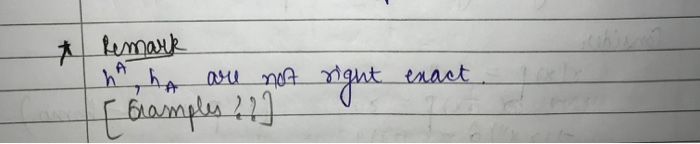 * Remark
h^A, h_A are not right exact.
[Examples ??]